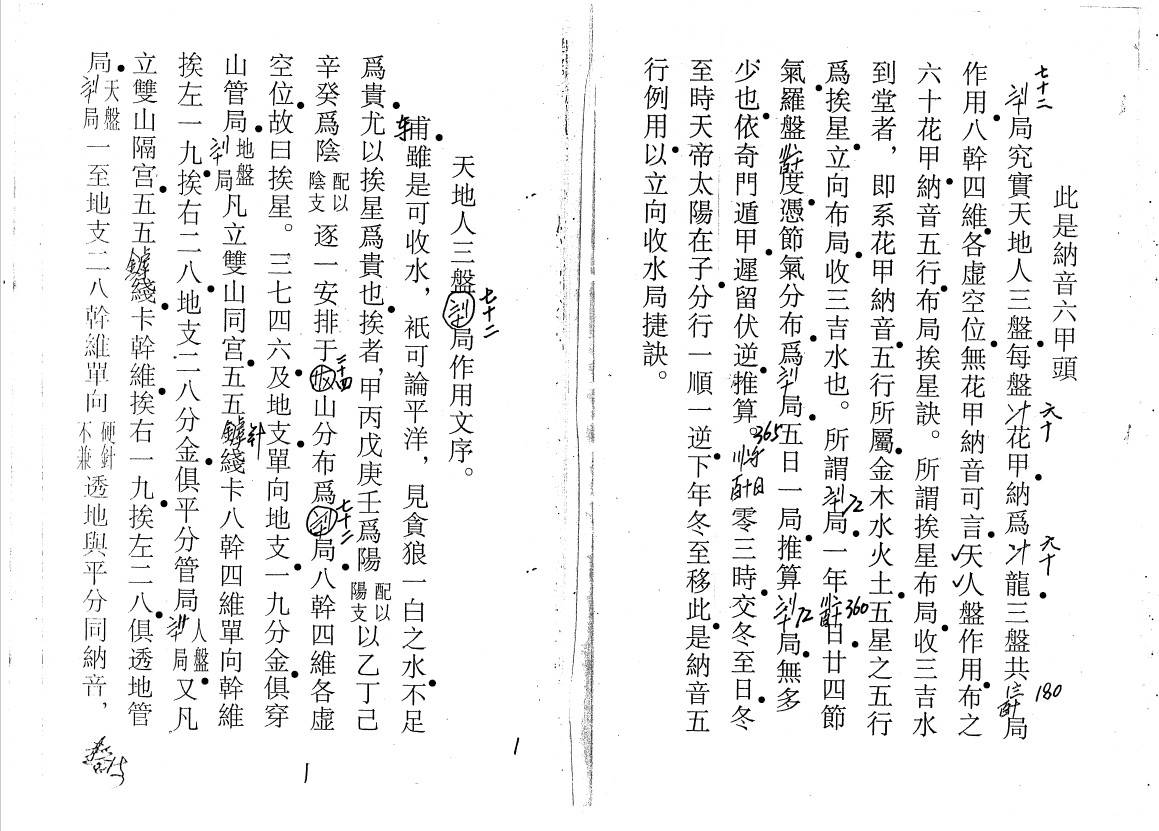 此是納音六甲頭
七十二
局究實天地人三盤每盤花甲納爲龍三盤共局
六十
九十
180
作用八幹四維各虛空位無花甲納音可言天人盤作用布之
六十花甲納音五行布局挨星訣。所謂挨星布局收三吉水
到堂者，即系花甲納音五行所屬金木水火土五星之五行
爲挨星立向布局收三吉水也。所謂局一年日廿四節
72
360
氣羅盤度憑節氣分布爲局五日一局推算局無多
72
少也依奇門遁甲遲留伏逆推算。零三時交冬至日冬
365
至時天帝太陽在子分行一順一逆下年冬至移此是納音五
行例用以立向收水局捷訣。
天地人三盤局作用文序。
七十二
輔雖是可收水，祇可論平洋，見貪狼一白之水不足
爲貴尤以挨星爲貴也挨者，甲丙戊庚壬爲陽配以陽支以乙丁己
辛癸爲陰配以陰支逐一安排于山分布爲局八幹四維各虛
二十四
七十二
空位故曰挨星。三七四六及地支單向地支一九分金俱穿
山管局地盤局凡立雙山同宮五五綫卡八幹四維單向幹維
針
挨左一九挨右二八地支二八分金俱平分管局人盤局又凡
立雙山隔宮五五綫卡幹維挨右一九挨左二八俱透地管
局天盤局一至地支二八幹維單向硬針不兼透地與平分同納音，
1
1